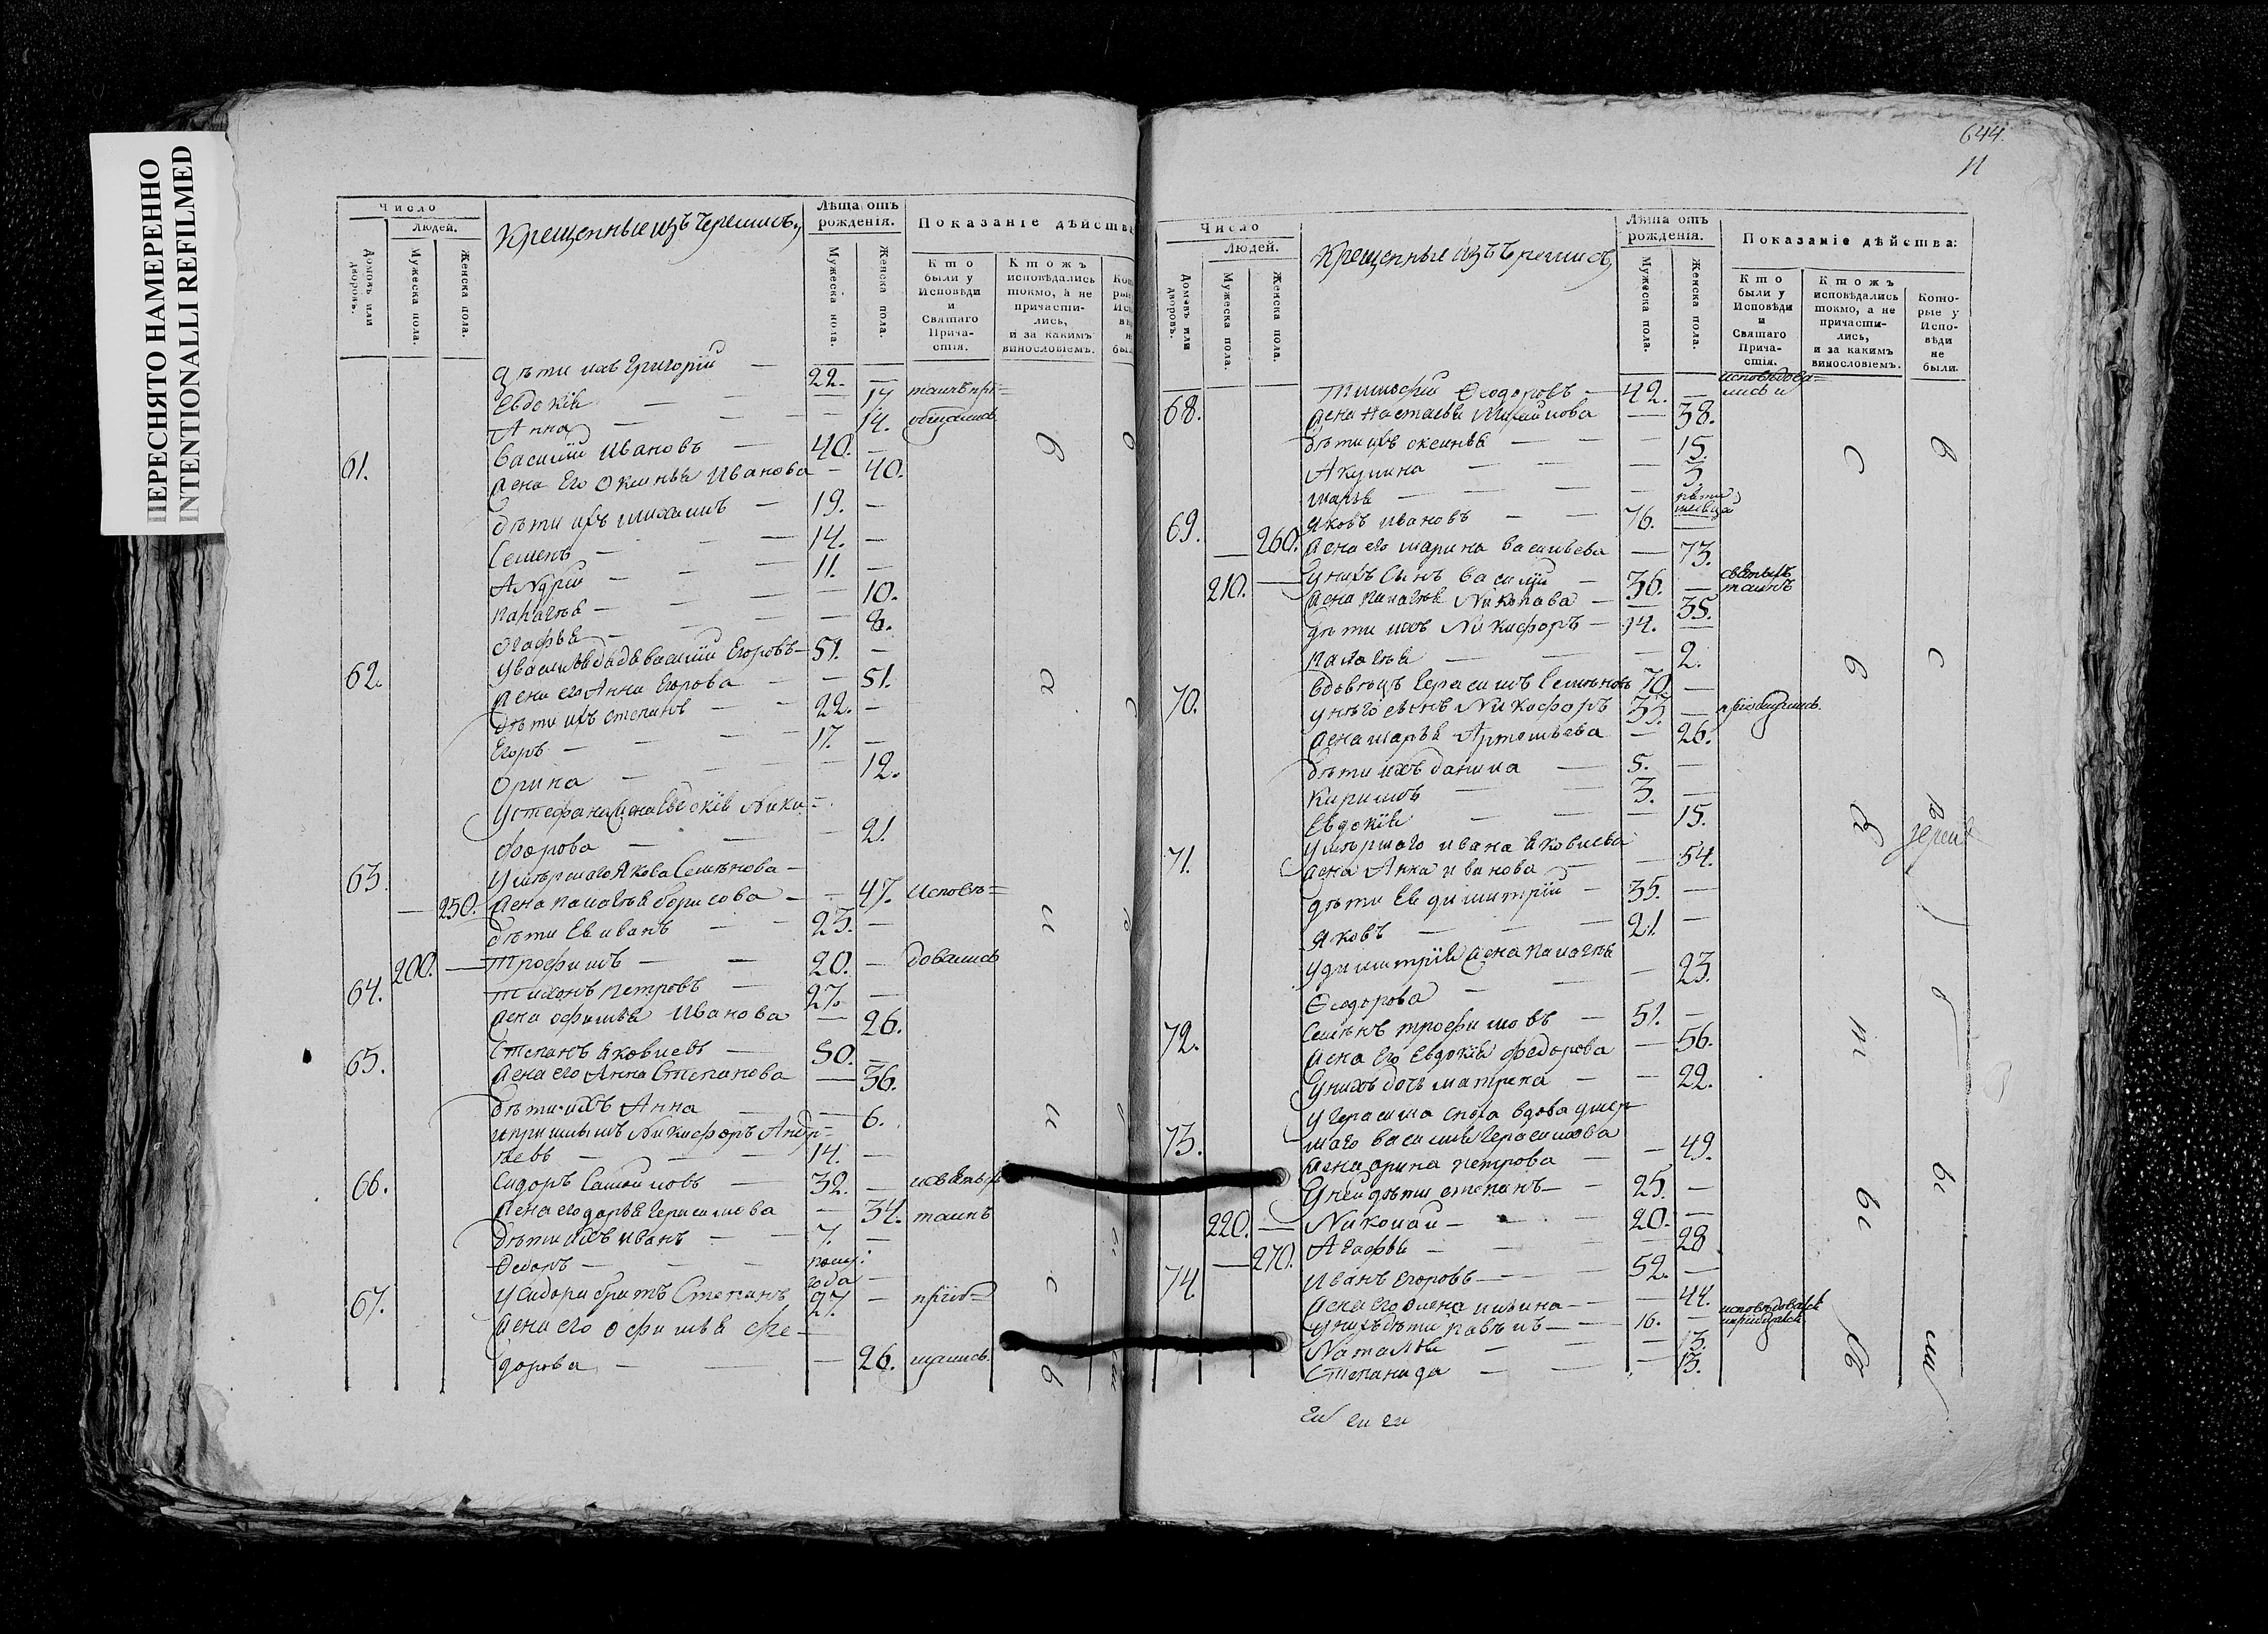 ПЕРЕСНЯТО НАМЕРЕННО
INTENTIONALLI REFILMED
Число
Людей.
Домовъ или дворовъ.
Мужеска пола.
Женска пола.
Крещенные изъ Черемисъ
Лѣта отъ рожденія.
Мужеска пола.
Женска пола.
Показаніе дѣйства
Кто были у Исповѣди и Святаго Прича-стія.
Ктожъ исповѣдались токмо, а не причасти-лись, и за какимъ винословіемъ.
дѣти ихъ Григорій — 22. —
Евдокія — — 17 таинъ прі=
Анна — — 14. общались
61. Василій Ивановъ — 40. —
жена Его Оксинья Иванова — 40.
дѣти ихъ Михаилъ — 19. —
Семенъ — 14. —
Андрей — 11. —
Палагѣя — — 10.
Огафья — — 8.
62. У Василья дядя Василій Егоровъ — 51. —
жена его Анна Егорова — — 51.
дѣти ихъ Степанъ — 22. —
Егоръ — 17. —
Орина — — 12.
У Стефана жена Евдокія Ники=
форова — — 21.
63. Умѣршаго Якова Семѣнова —
250. жена Палагѣя Борисова — — 47. исповѣ=
дѣти Ея Иванъ — 23. —
200. — Трофимъ — 20. — довались
64. Тихонъ Петровъ — 27. —
жена Офимья Иванова — 26.
65. Степанъ Яковлевъ — 50. —
жена его Анна Степанова — 36.
дѣти ихъ Анна — — 6.
и Никифоръ Андр=
ѣевъ — 14. —
66. Сидоръ Самойловъ — 32. —
жена его Дарья Герасимова — 34. таинъ
дѣти ихъ Иванъ — 7. —
Ѳедоръ — полу:
года —
67. У Сидора братъ Степанъ 27 — пріоб=
жена его Офимья Фе=
дорова — — 26. щались.
644.
11
Число
Людей.
Домовъ или дворовъ.
Мужеска пола.
Женска пола.
Крещенные изъ Черемисъ
Лѣта отъ рожденія.
Мужеска пола.
Женска пола.
Показаніе дѣйства:
Кто были у Исповѣди и Святаго Прича-стія.
Ктожъ исповѣдались токмо, а не причасти-лись, и за какимъ винословіемъ.
Кото-рые у Испо-вѣди не были.
68. Тимофей Ѳеодоровъ — 42. — исповѣдова=
лись и
жена Настасья Михайлова — 38.
дѣти ихъ Оксинья — — 15.
Акулина — — 3.
Марья — —
69. Яковъ Ивановъ — 76. —
— 260. жена его Марина Васильева — 73.
210. — у нихъ сынъ Василій — 36. — святыхъ
таинъ
жена Палагѣя — 35.
дѣти ихъ Никифоръ — 14. —
Палагѣя — — 2.
70. Вдовецъ Герасимъ Семѣновъ 70 —
у него сынъ Никифоръ 33. — пріобщились.
жена Марья Артемьева — 26.
дѣти ихъ Данила — 5. —
Кирилъ — 3. —
Евдокія — — 15.
71. Умѣршаго Ивана Яковлева
жена Анна Иванова — — 54.
дѣти Ея Димитрій — 35. —
Яковъ — 21. —
У Димитрія жена Палагѣя
Ѳеодорова — — 23.
72. Семѣнъ Трофимовъ — 51. —
жена Его Евдокія Федорова — 56.
у нихъ дочь Матрена — — 22.
У Герасима сноха вдова умер=
73. шаго Василья Герасимова
жена Орина Петрова — — 49.
у ней дѣти Степанъ — 25. —
220. — Николай — 20. —
— 270. Агафья — — 28
74. Иванъ Егоровъ — 52. —
жена его Олена Ильина — — 44.
у нихъ дѣти Павелъ — 16. — исповѣдовались
Наталья — — 13.
Степанида — — 13.